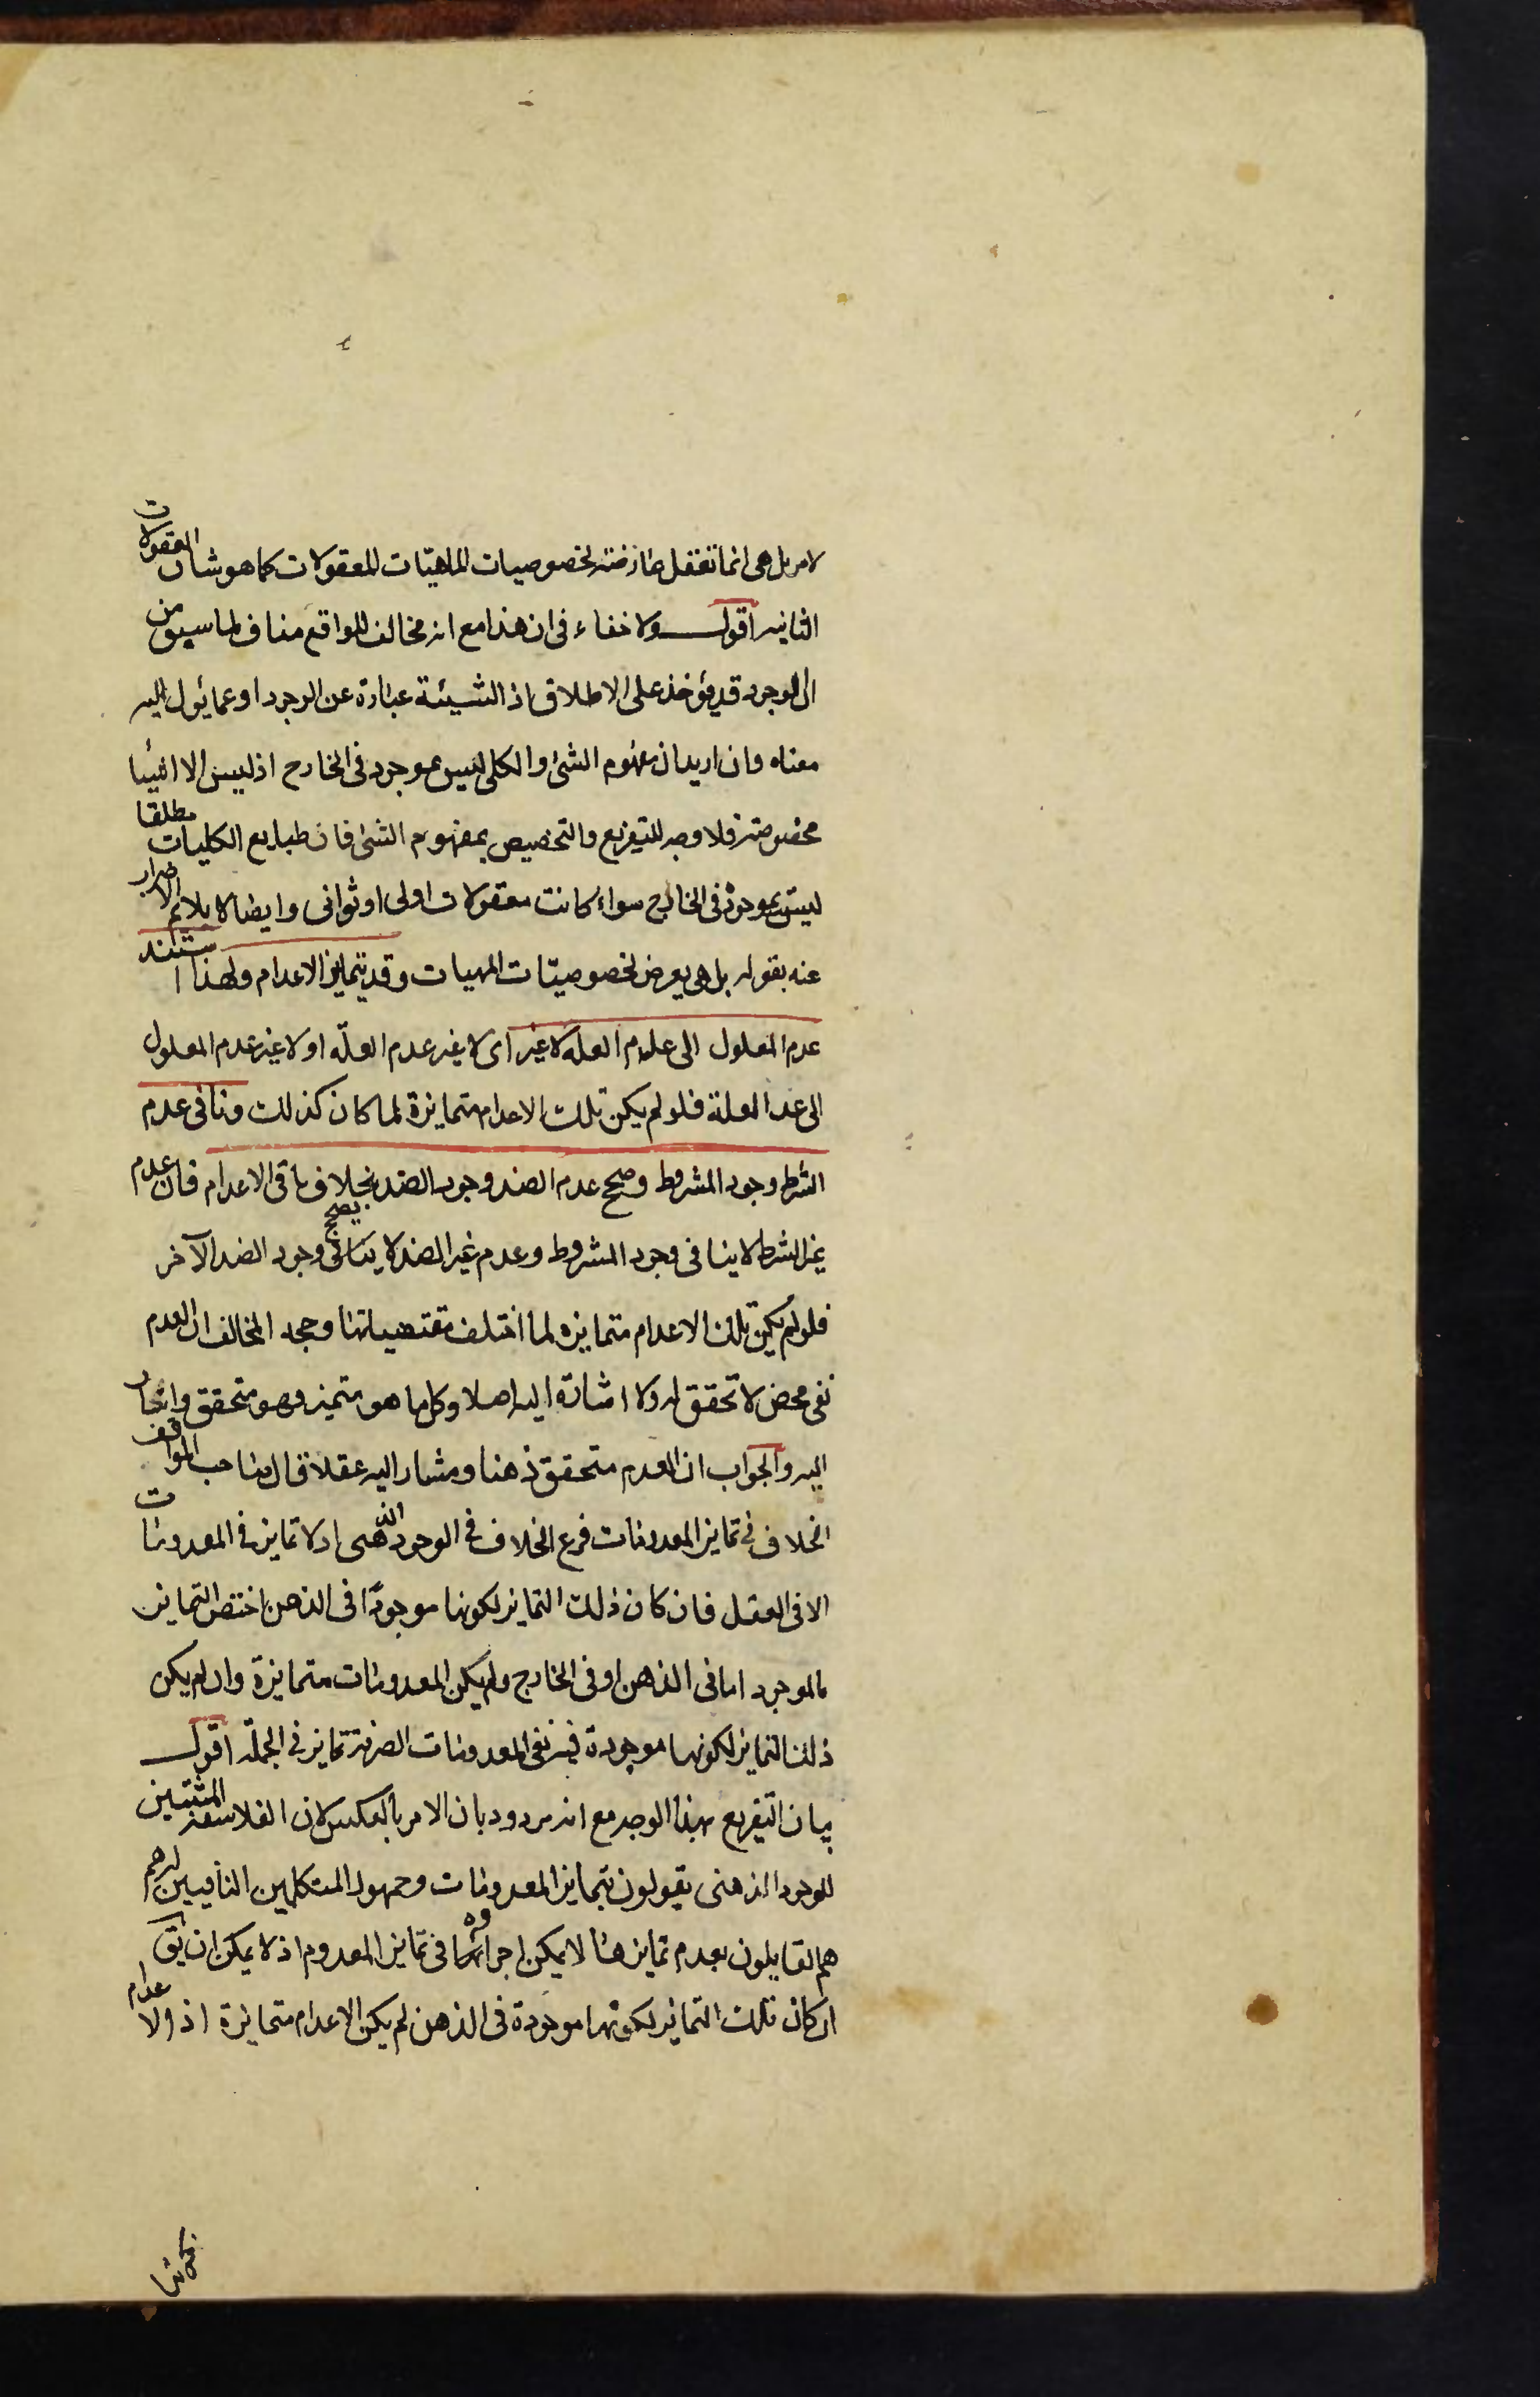 لامر بل هى انما تعقل عارضته لخصوصيات الماهيّات للمعقولات كما هو شان المعقولات
الثانيه اقول ولا خفاء فى ان هذا مع انه مخالف للواقع مناف لما سبق من
ان الوجود قد يؤخذ على الاطلاق اذ الشيئة عبارة عن الوجود او عما يئول اليه
معناه وان اريد ان مفهوم الشئ والكلى ليس بموجود فى الخارج اذ ليس الا اشيا
مخصوصته فلا وجه للتفريع والتخصيص بمفهوم الشئ فان طبايع الكليات مطلقا
ليست بموجودة فى الخارج سواء كانت معقولات اولى او ثوانى وايضا لا يلائم الاضراب
عنه بقوله بل هى يعرض لخصوصيّات المهيات وقد يتمايز الاعدام ولهذا استند
عدم المعلول الى علدم العله لا غير اى لا غير عدم العلّه او لا غير عدم المعلول
الى عد العلة فلو لم يكن تلك الاعدام متمايزة لما كان كذلك ونافى عدم
الشرط وجود المشروط وصح عدم الضد وجود الضد بخلاف باقى الاعدام فان عدم
غير الشرط لا ينافى وجود المشروط وعدم غير الضد لا يصح وجود الضد الآخر
فلو لم يكن تلك الاعدام متمايزه لما اختلف مقتضياتها وحجه المخالف ان العدم
نفى محض لا تحقق له ولا اشارة اليه اصلا وكل ما هو متميز فهو متحقق وانحار
اليه والجواب ان العدم متحقق ذهنا ومشار اليه عقلا قال صاحب المواقف
الخلاف فى تمايز المعدومات فرع الخلاف فى الوجود الذهنى اد لا تمايز فى المعدومات
الا فى العقل فان كان ذلك التمايز لكونها موجودًا فى الذهن اختص التمايز
بالموجود اما فى الذهن او فى الخارج ولم يكن المعدومات متمايزة وان لم يكن
ذلك التمايز لكونها موجودة فيه نفى المعدومات الصرفة تمايز فى الجملّه اقول
بيان التفريع بهذا الوجه مع انه مردود بان الامر بالعكس لان الفلاسفه المثبتين
للوجود الذهنى يقولون بتمايز المعدومات وجمهور المتكلمين النافيين له هم
هم القايلون بعدم تمايزها لا يمكن اجراؤه فى تمايز المعدوم اذ لا يمكن ان يق
ان كان تلك التمايز لكونها موجودة فى الذهن لم يكن الاعدام متمايزة اذ الاعدام